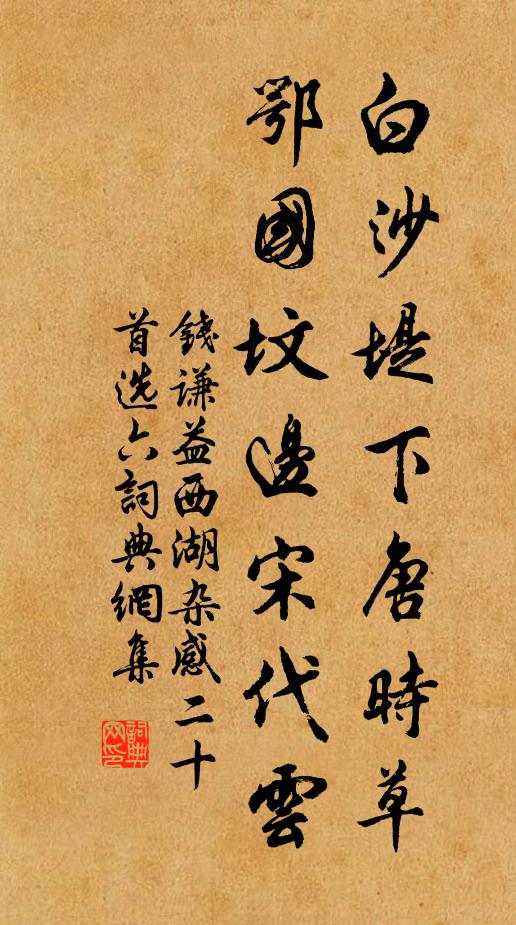 白沙堤下唐時草
鄂國墳邊宋代雲
錢谦益西湖杂感二十
首选六詞典網集
詞典
网印